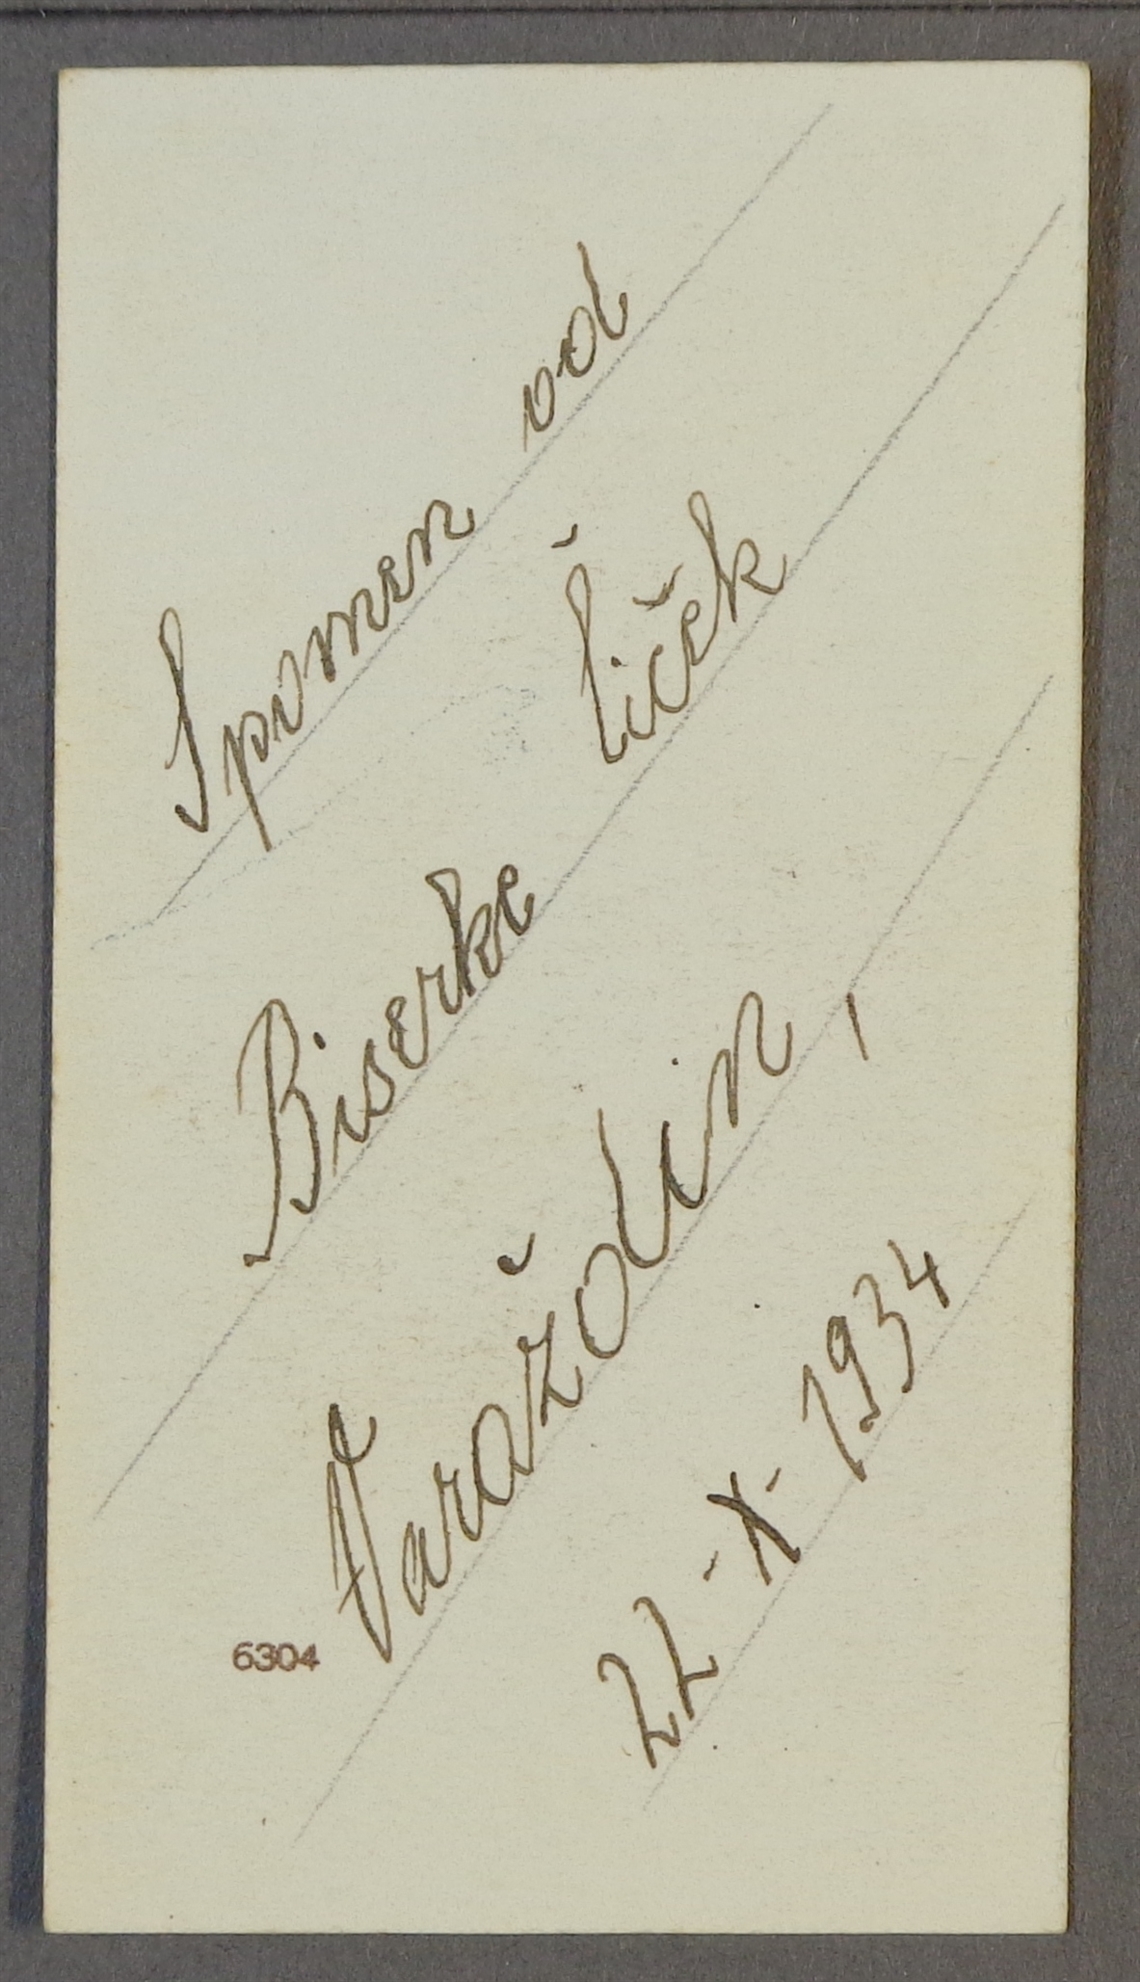 Spomen od
Biserke Šiček
Varaždin,
22-X-1934
6304